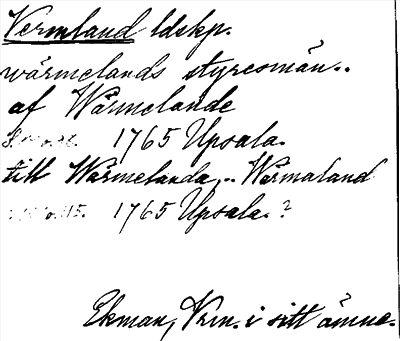 Vermland ldskp.
wärmelands styresmän..
af Wärmelande
1765 Upsala.
till Wärmelanda,.. Warmaland
1765 Upsala.?
Ekman, Vrm. i sitt ämne.